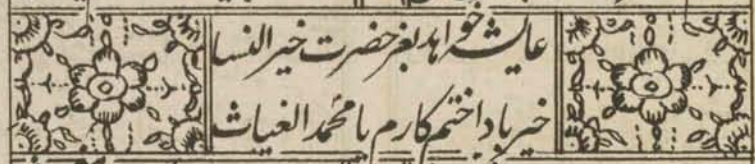 عایشه خواهد بعز حضرت خیر النسا
خیر بادا ختم کارم یا محمد الغیاث